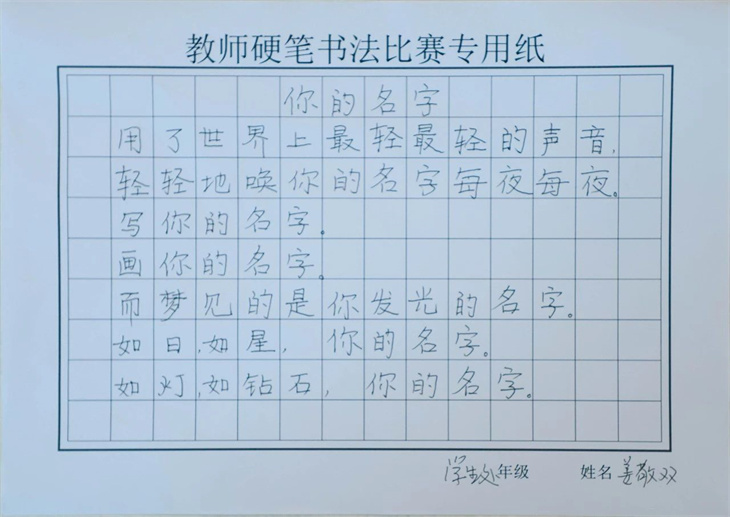 教师硬笔书法比赛专用纸
你的名字
用了世界上最轻最轻的声音,
轻轻地唤你的名字每夜每夜。
写你的名字。
画你的名字。
而梦见的是你发光的名字。
如日,如星,你的名字。
如灯,如钻石,你的名字。
学生处年级 姓名姜敬双